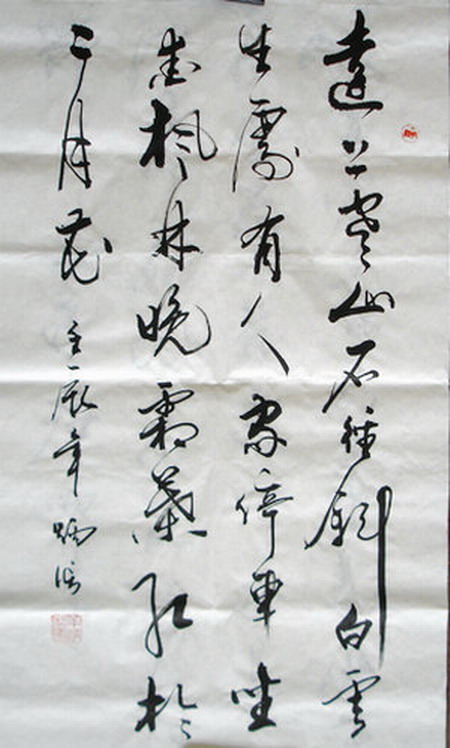 遠上寒山石徑斜白雲
生處有人家停車坐
愛楓林晚霜葉紅於
二月花
壬辰年